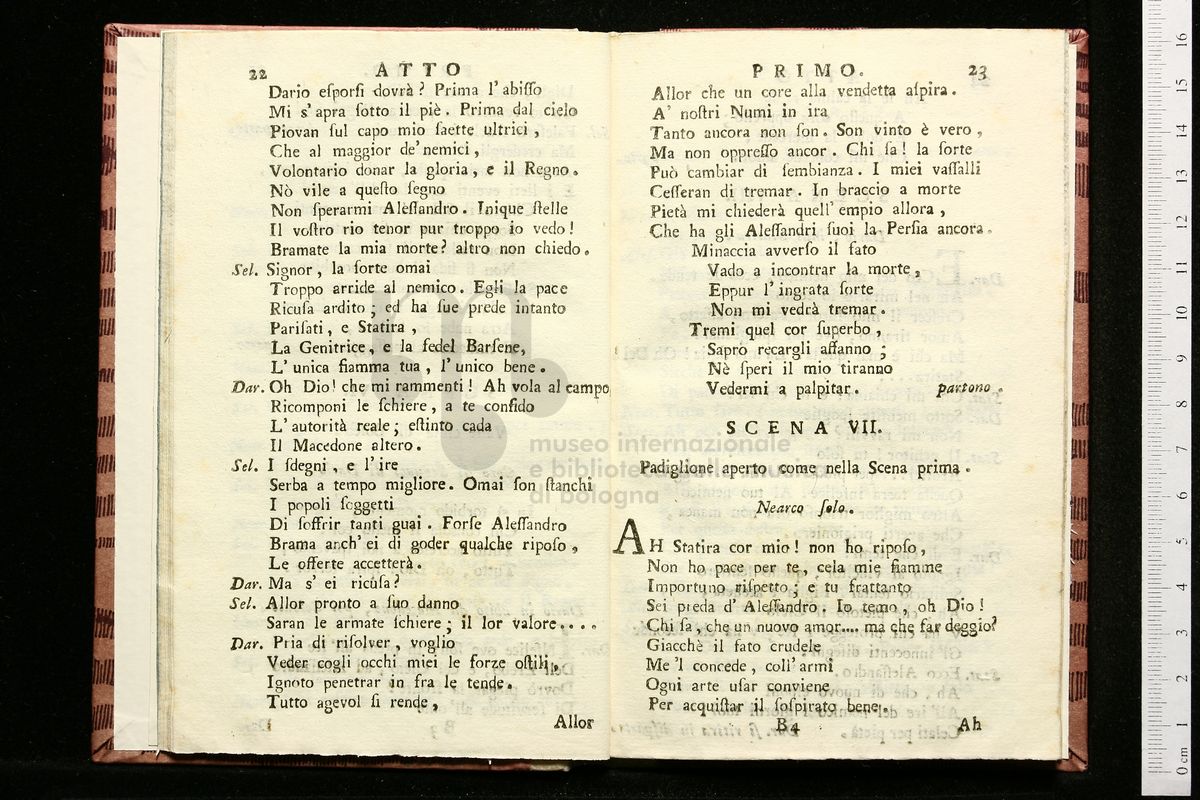 22 ATTO
Dario eſporſi dovrà? Prima l'abiſſo
Mi s'apra ſotto il piè. Prima dal cielo
Piovan ſul capo mio ſaette ultrici,
Che al maggior de' nemici,
Volontario donar la gloria, e il Regno.
Nò vile a queſto ſegno
Non ſperarmi Aleſſandro. Inique ſtelle
Il voſtro rio tenor pur troppo io vedo!
Bramate la mia morte? altro non chiedo.
Sel. Signor, la ſorte omai
Troppo arride al nemico. Egli la pace
Ricuſa ardito; ed ha ſue prede intanto
Pariſati, e Statira,
La Genitrice, e la fedel Barſene,
L'unica fiamma tua, l'unico bene.
Dar. Oh Dio! che mi rammenti! Ah vola al campo
Ricomponi le ſchiere, a te confido
L'autorità reale; eſtinto cada
Il Macedone altero.
Sel. I ſdegni, e l'ire
Serba a tempo migliore. Omai ſon ſtanchi
I popoli ſoggetti
Di ſoffrir tanti guai. Forſe Aleſſandro
Brama anch'ei di goder qualche ripoſo,
Le offerte accetterà.
Dar. Ma s'ei ricuſa?
Sel. Allor pronto a ſuo danno
Saran le armate ſchiere; il lor valore....
Dar. Pria di riſolver, voglio
Veder cogli occhi miei le forze oſtili,
Ignoto penetrar in fra le tende.
Tutto agevol ſi rende,
Allor
PRIMO. 23
Allor che un core alla vendetta aſpira.
A' noſtri Numi in ira
Tanto ancora non ſon. Son vinto è vero,
Ma non oppreſſo ancor. Chi ſa! la ſorte
Può cambiar di ſembianza. I miei vaſſalli
Ceſſeran di tremar. In braccio a morte
Pietà mi chiederà quell'empio allora,
Che ha gli Aleſſandri ſuoi la Perſia ancora.
Minaccia avverſo il fato
Vado a incontrar la morte,
Eppur l'ingrata ſorte
Non mi vedrà tremar.
Tremi quel cor ſuperbo,
Saprò recargli affanno;
Nè ſperi il mio tiranno
Vedermi a palpitar. partono.
SCENA VII.
Padiglione aperto come nella Scena prima.
Nearco ſolo.
AH Statira cor mio! non ho ripoſo,
Non ho pace per te, cela mie fiamme
Importuno riſpetto; e tu frattanto
Sei preda d'Aleſſandro. Io temo, oh Dio!
Chi ſa, che un nuovo amor.... ma che far deggio?
Giacchè il fato crudele
Me 'l concede, coll'armi
Ogni arte uſar conviene
Per acquiſtar il ſoſpirato bene.
B4 Ah
museo internazionale
e biblioteca della musica
di bologna
0 cm 1 2 3 4 5 6 7 8 9 10 11 12 13 14 15 16